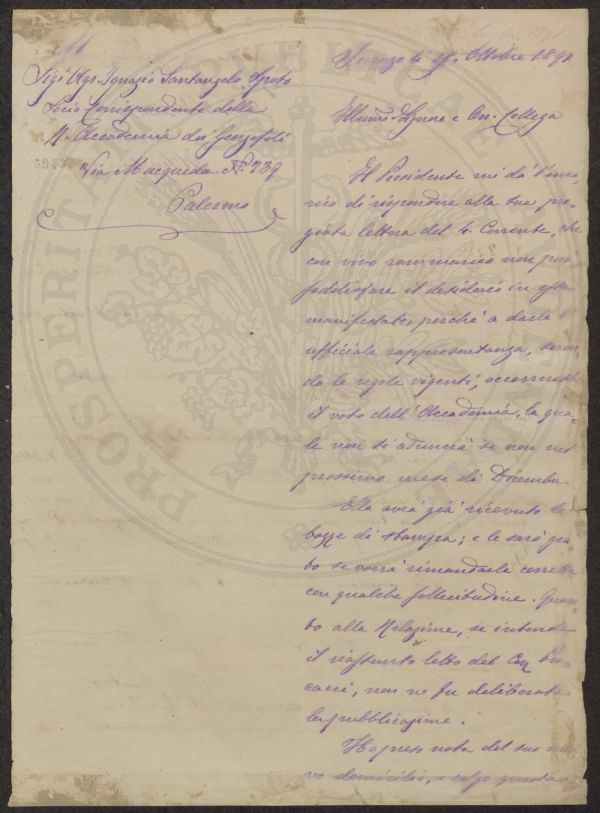 Sigr Cav. Ignazio Santangelo Spoto
Socio Corrispondente della
R. Accademia dei Georgofili
Via Macqueda No. 739
Palermo
Firenze li Ottobre 1891
Illmo Signore e On. Collega
Il Presidente mi dà l'inca-
rico di rispondere alla sua pre-
giata lettera del 4. Corrente, che
con vivo rammarico non può
soddisfare il desiderio in essa
manifestato, perché a darle l'
ufficiale rappresentanza, secon-
do le regole vigenti, occorrerebbe
il voto dell'Accademia, la qua-
le non si adunerà se non nel
prossimo mese di Dicembre.
Ella avrà già ricevuto le
bozze di stampa; e le sarò gra-
to se vorrà rimandarle corrette
con qualche sollecitudine. Quan-
to alla Relazione, se intende
il riassunto letto dal Cav. Pro-
cacci, non ne fu deliberata
la pubblicazione.
Ho preso nota del suo nuo-
vo domicilio, e colgo questa
PROSPERITA PUBLICAE